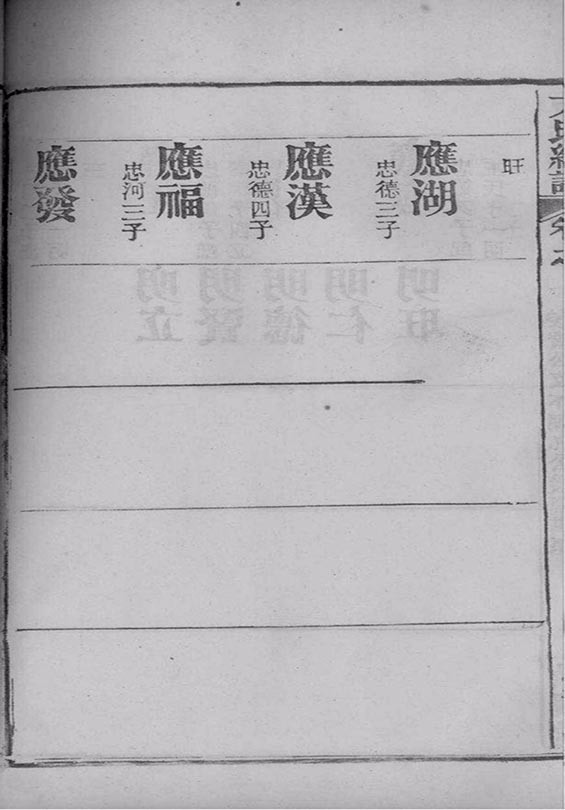 旺
應湖
忠德三子
應漢
忠德四子
應福
忠河三子
應發